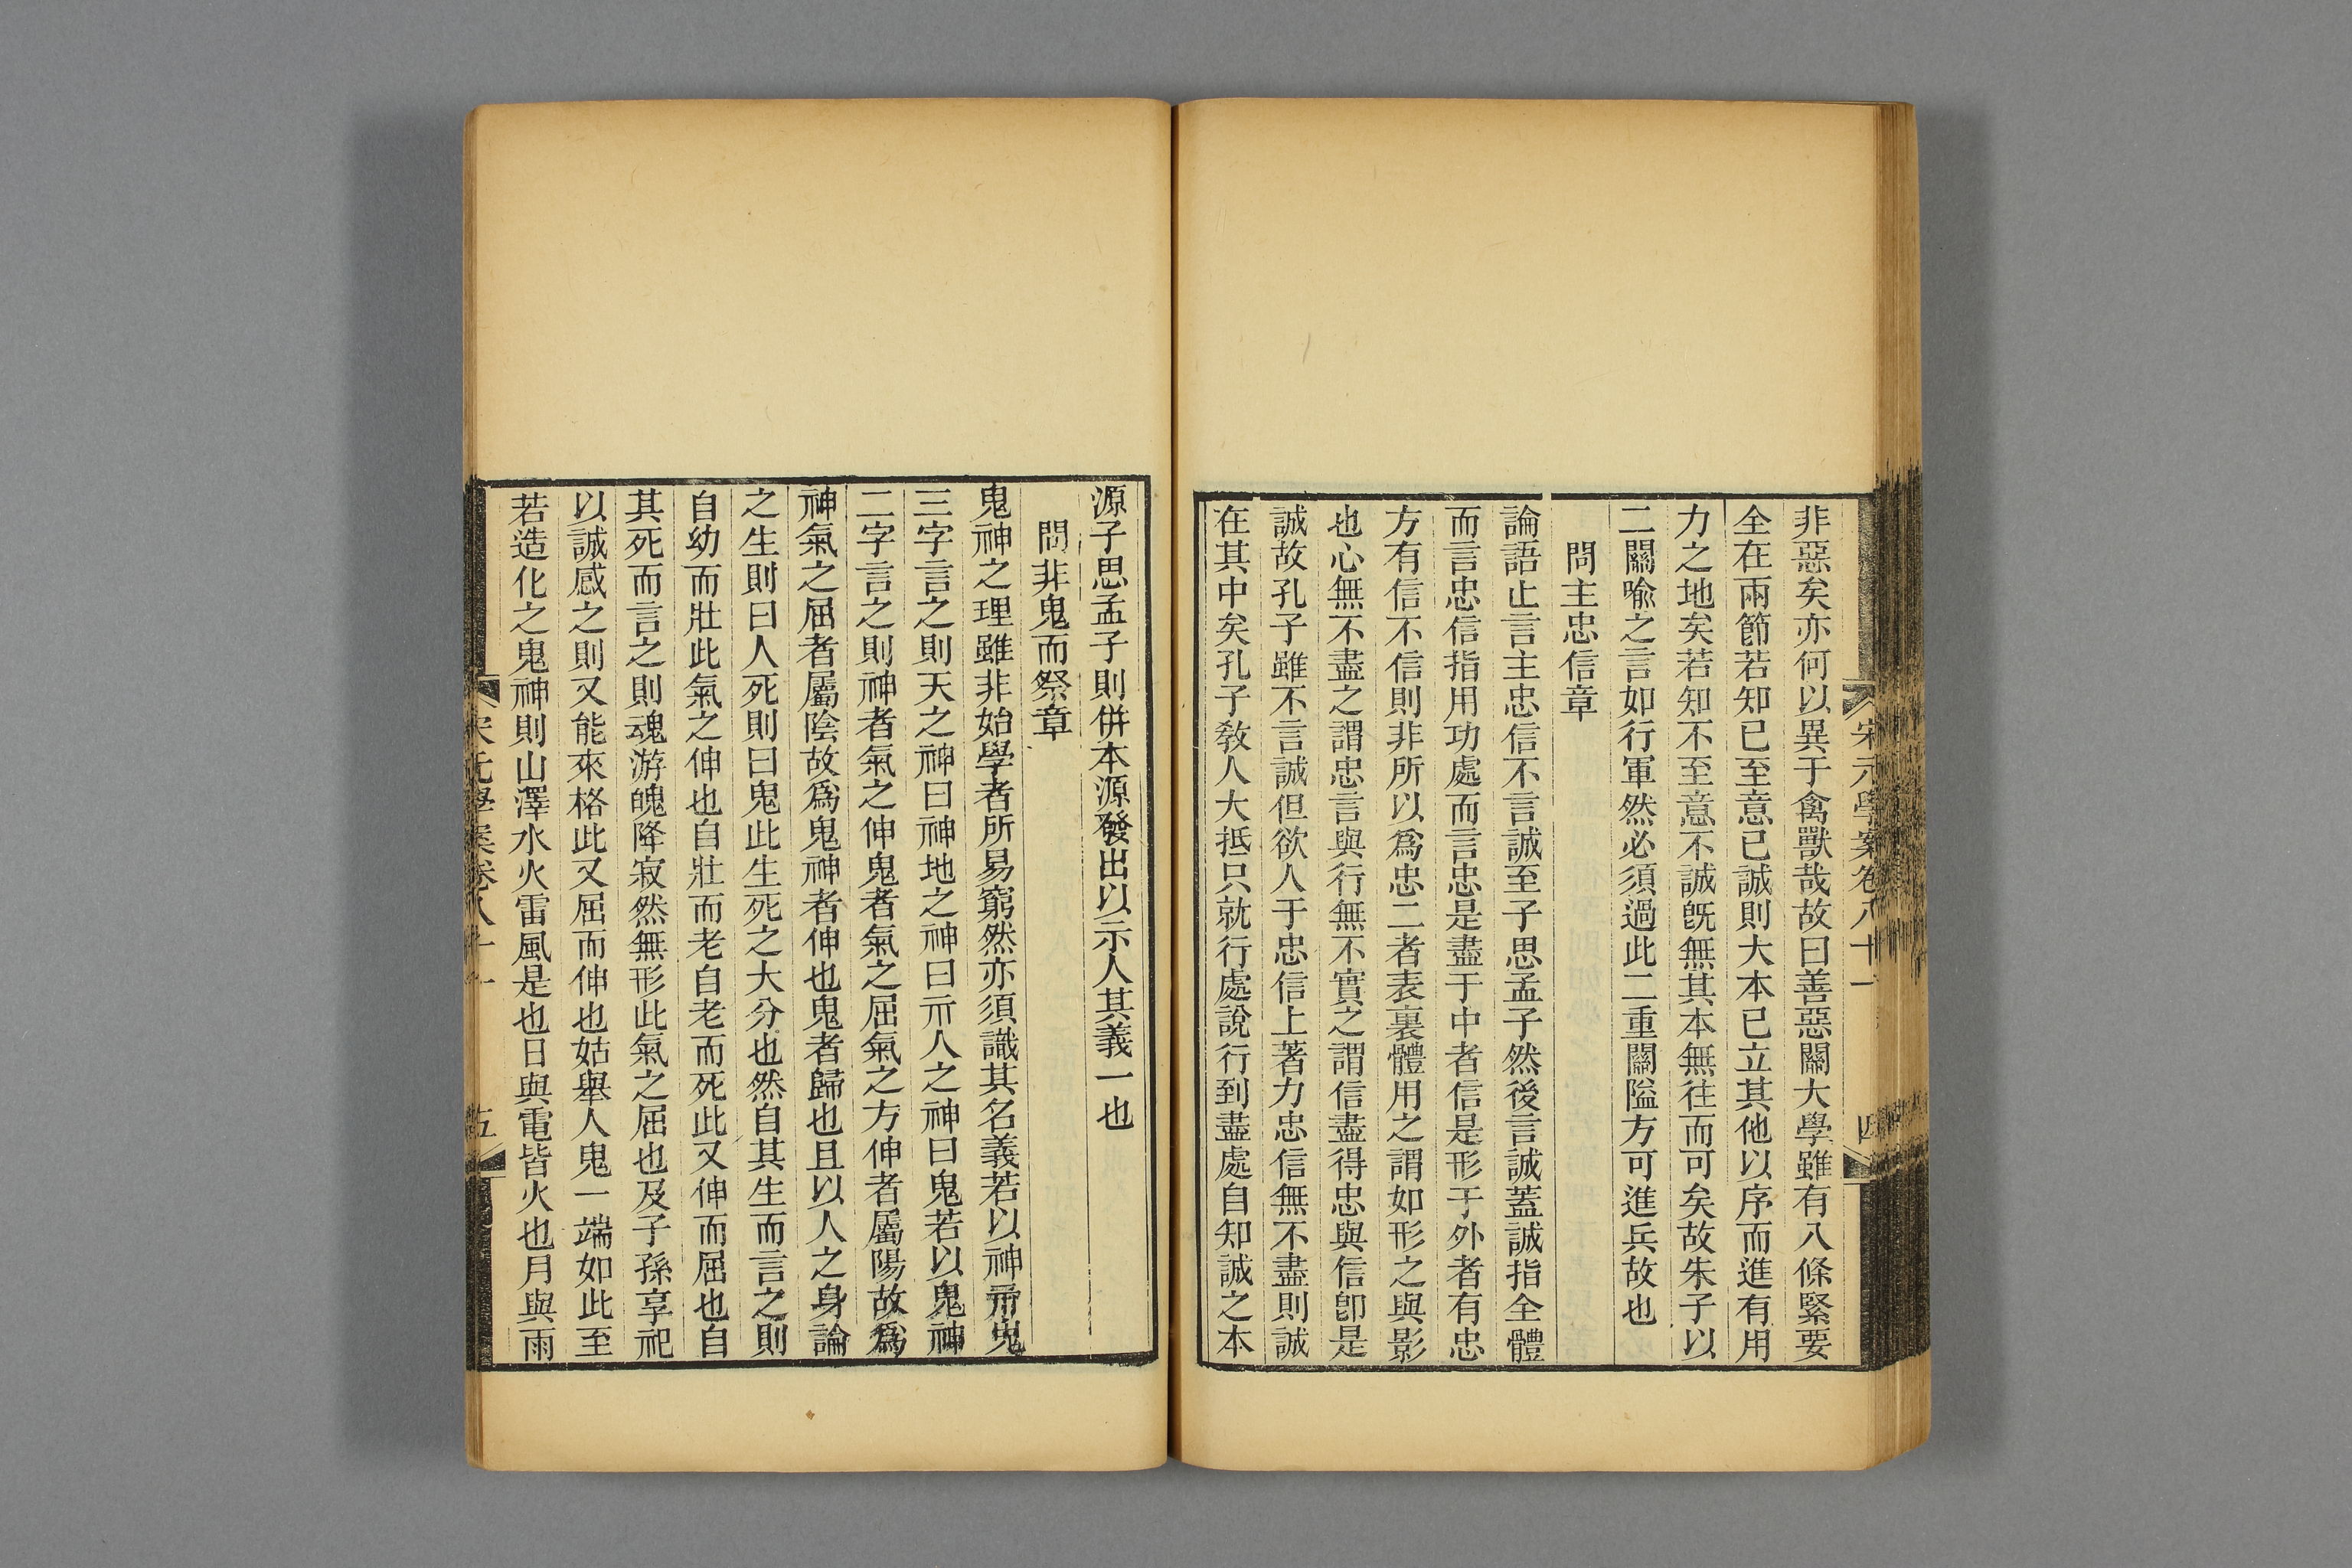 宋元學案卷八十一
四
非惡矣亦何以異于禽獸哉故曰善惡關大學雖有八條緊要
全在兩節若知已至意已誠則大本已立其他以序而進有用
力之地矣若知不至意不誠旣無其本無往而可矣故朱子以
二關喻之言如行軍然必須過此二重關隘方可進兵故也
問主忠信章
論語止言主忠信不言誠至子思孟子然後言誠蓋誠指全體
而言忠信指用功處而言忠是盡于中者信是形于外者有忠
方有信不信則非所以爲忠二者表裏體用之謂如形之與影
也心無不盡之謂忠言與行無不實之謂信盡得忠與信卽是
誠故孔子雖不言誠但欲人于忠信上著力忠信無不盡則誠
在其中矣孔子敎人大抵只就行處說行到盡處自知誠之本
源子思孟子則併本源發出以示人其義一也
問非鬼而祭章
鬼神之理雖非始學者所易窮然亦須識其名義若以神示鬼
三字言之則天之神曰神地之神曰示人之神曰鬼若以鬼神
二字言之則神者氣之伸鬼者氣之屈氣之方伸者屬陽故爲
神氣之屈者屬陰故爲鬼神者伸也鬼者歸也且以人之身論
之生則曰人死則曰鬼此生死之大分也然自其生而言之則
自幼而壯此氣之伸也自壯而老自老而死此又伸而屈也自
其死而言之則魂游魄降寂然無形此氣之屈也及子孫享祀
以誠感之則又能來格此又屈而伸也姑舉人鬼一端如此至
若造化之鬼神則山澤水火雷風是也日與電皆火也月與雨
宋元學案卷八十一
五